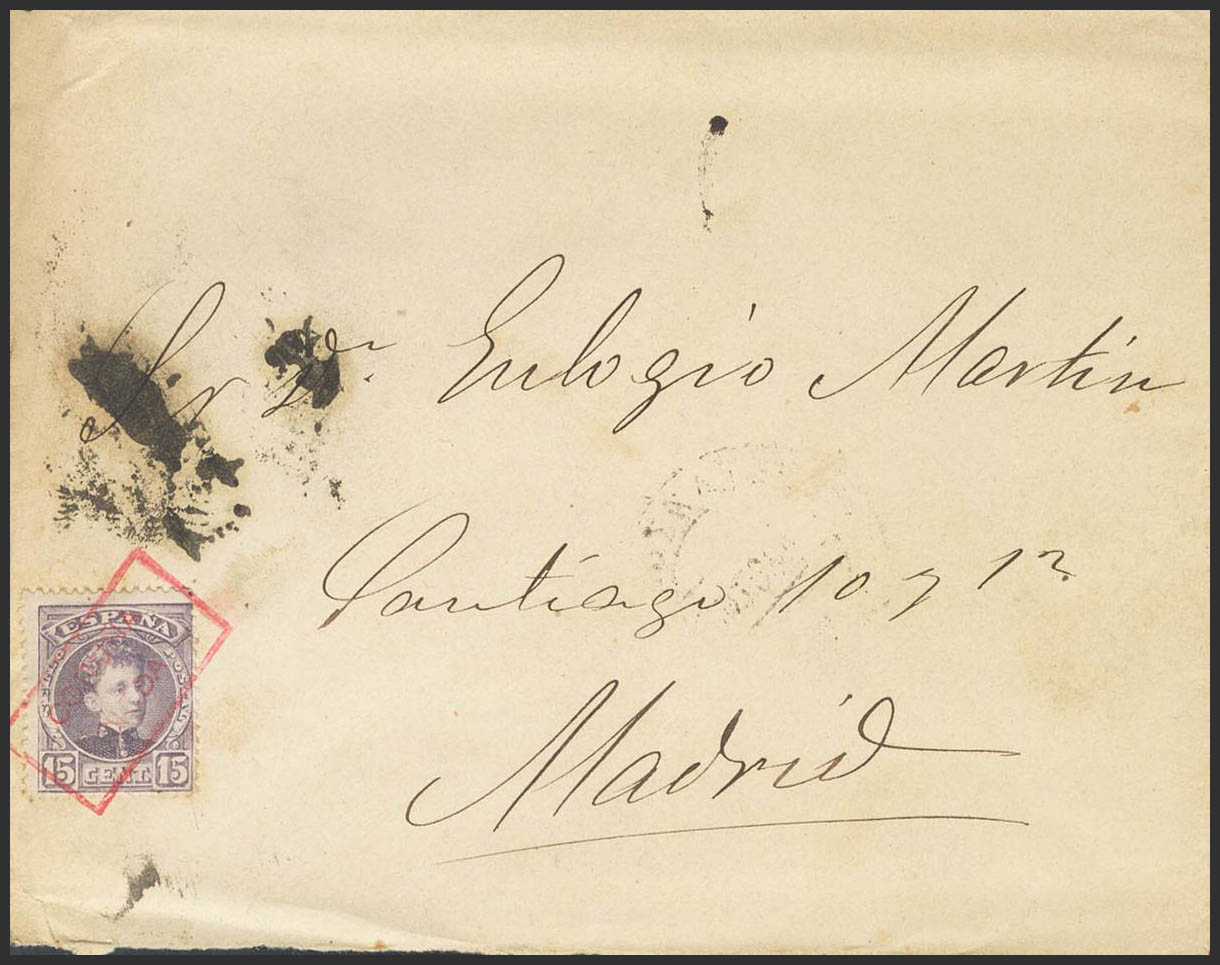 Sr Dn Eulogio Martin
Santiago 10 y 12
Madrid
ESPAÑA
15 CENT. 15